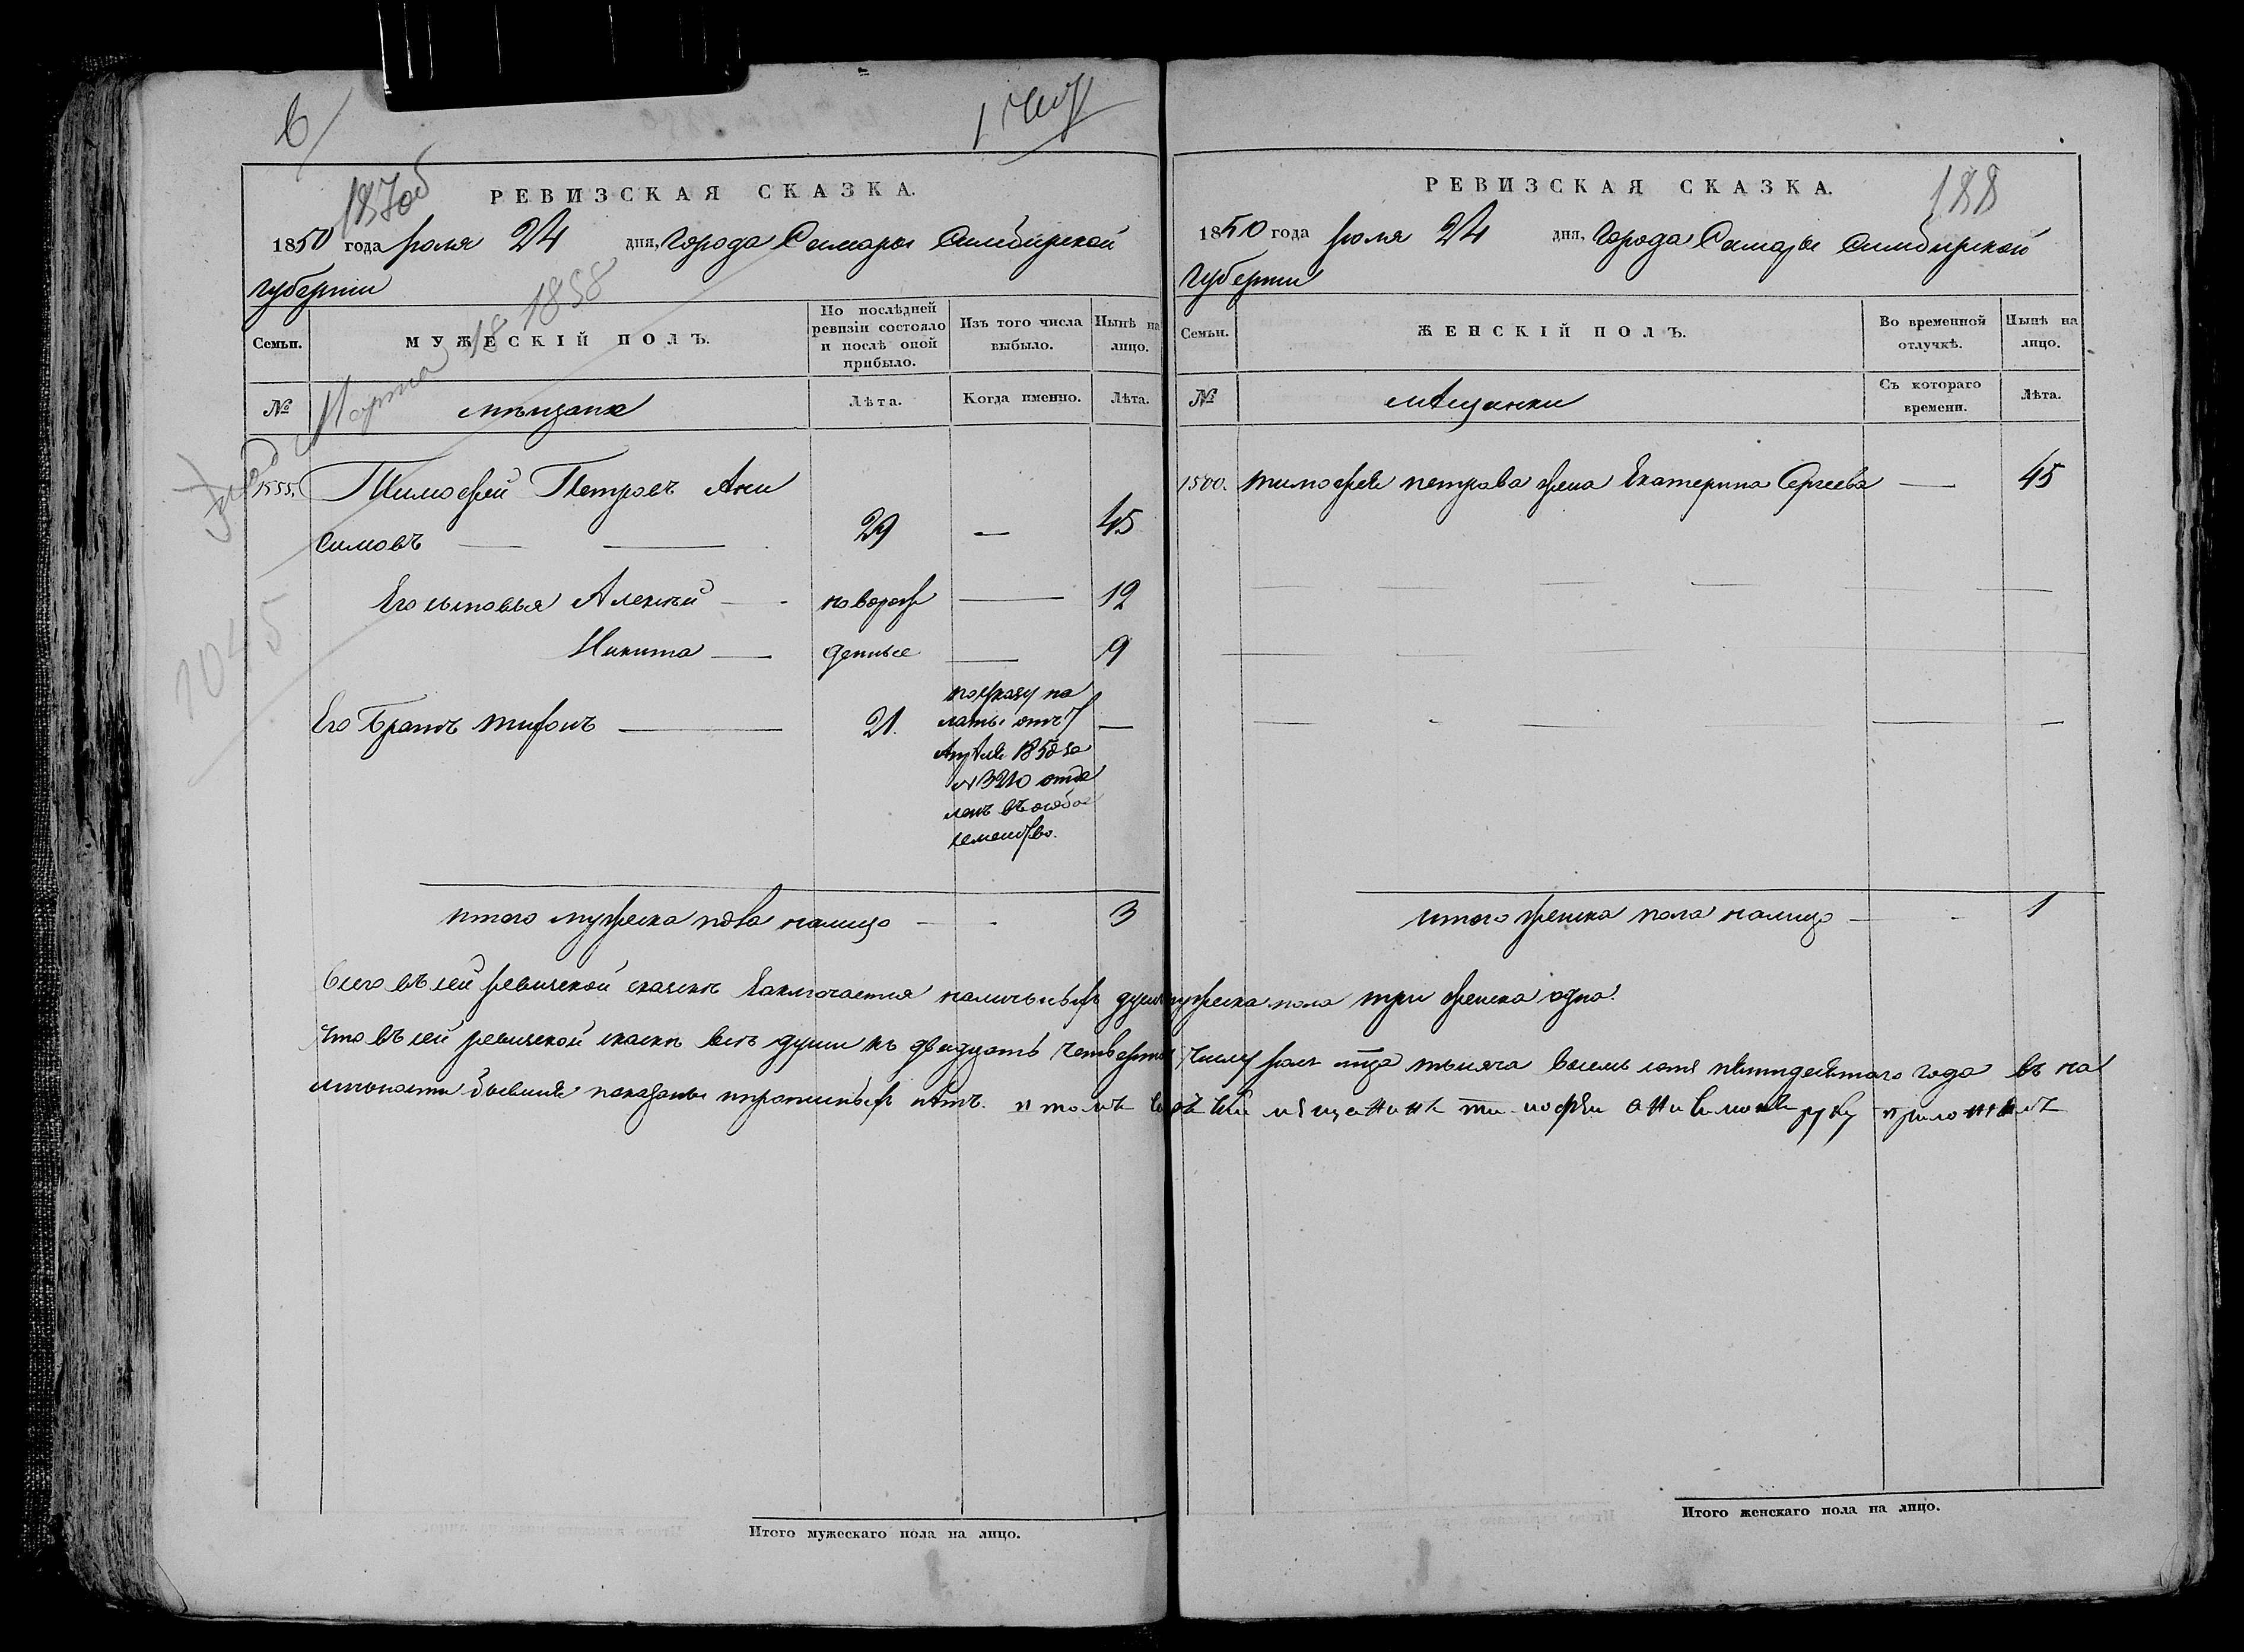 6
187об
РЕВИЗСКАЯ СКАЗКА.
1850 года юля 24 дня, города Самары Симбирской
губернии
Семьи.
МУЖЕСКІЙ ПОЛЪ.
По послѣдней ревизіи состояло и послѣ оной прибыло.
Изъ того числа выбыло.
Нынѣ на лицо.
№
мѣщане
Лѣта.
Когда именно.
Лѣта.
Марта 18 1858
1045
1555.
Тимофей Петровъ Ани
симовъ 29 — 45
Его сыновья Алексѣй — новорож — 12
Никита — денные — 9
Его Братъ Тифонъ — 21. —
по указу па
латы отъ 7
Апреля 1850 за
№ 3210 отде
ленъ въ особое
семейство.
итого мужеска пола налицо — 3
188
РЕВИЗСКАЯ СКАЗКА.
1850 года юля 24 дня, города Самары Симбирской
губернии
Семьи.
ЖЕНСКІЙ ПОЛЪ.
Во временной отлучкѣ.
Нынѣ на лицо.
№
мѣщанки
Съ котораго времени.
Лѣта.
1500. Тимофея петрова жена Екатерина Сергеева — 45
итого женска пола налицо — 1
Всего въ сей ревизской сказкѣ заключается наличныхъ душъ мужеска пола три женска одна.
Что въ сей ревизской сказкѣ все души къ двадцать четвертому числу юля м-ца тысяча восемь сотъ пятидесятаго года въ на
личности бывшие показаны прописныхъ нѣтъ. в томъ мѣщанинъ тимофѣи анисимовъ руку приложилъ
Итого мужескаго пола на лицо.
Итого женскаго пола на лицо.